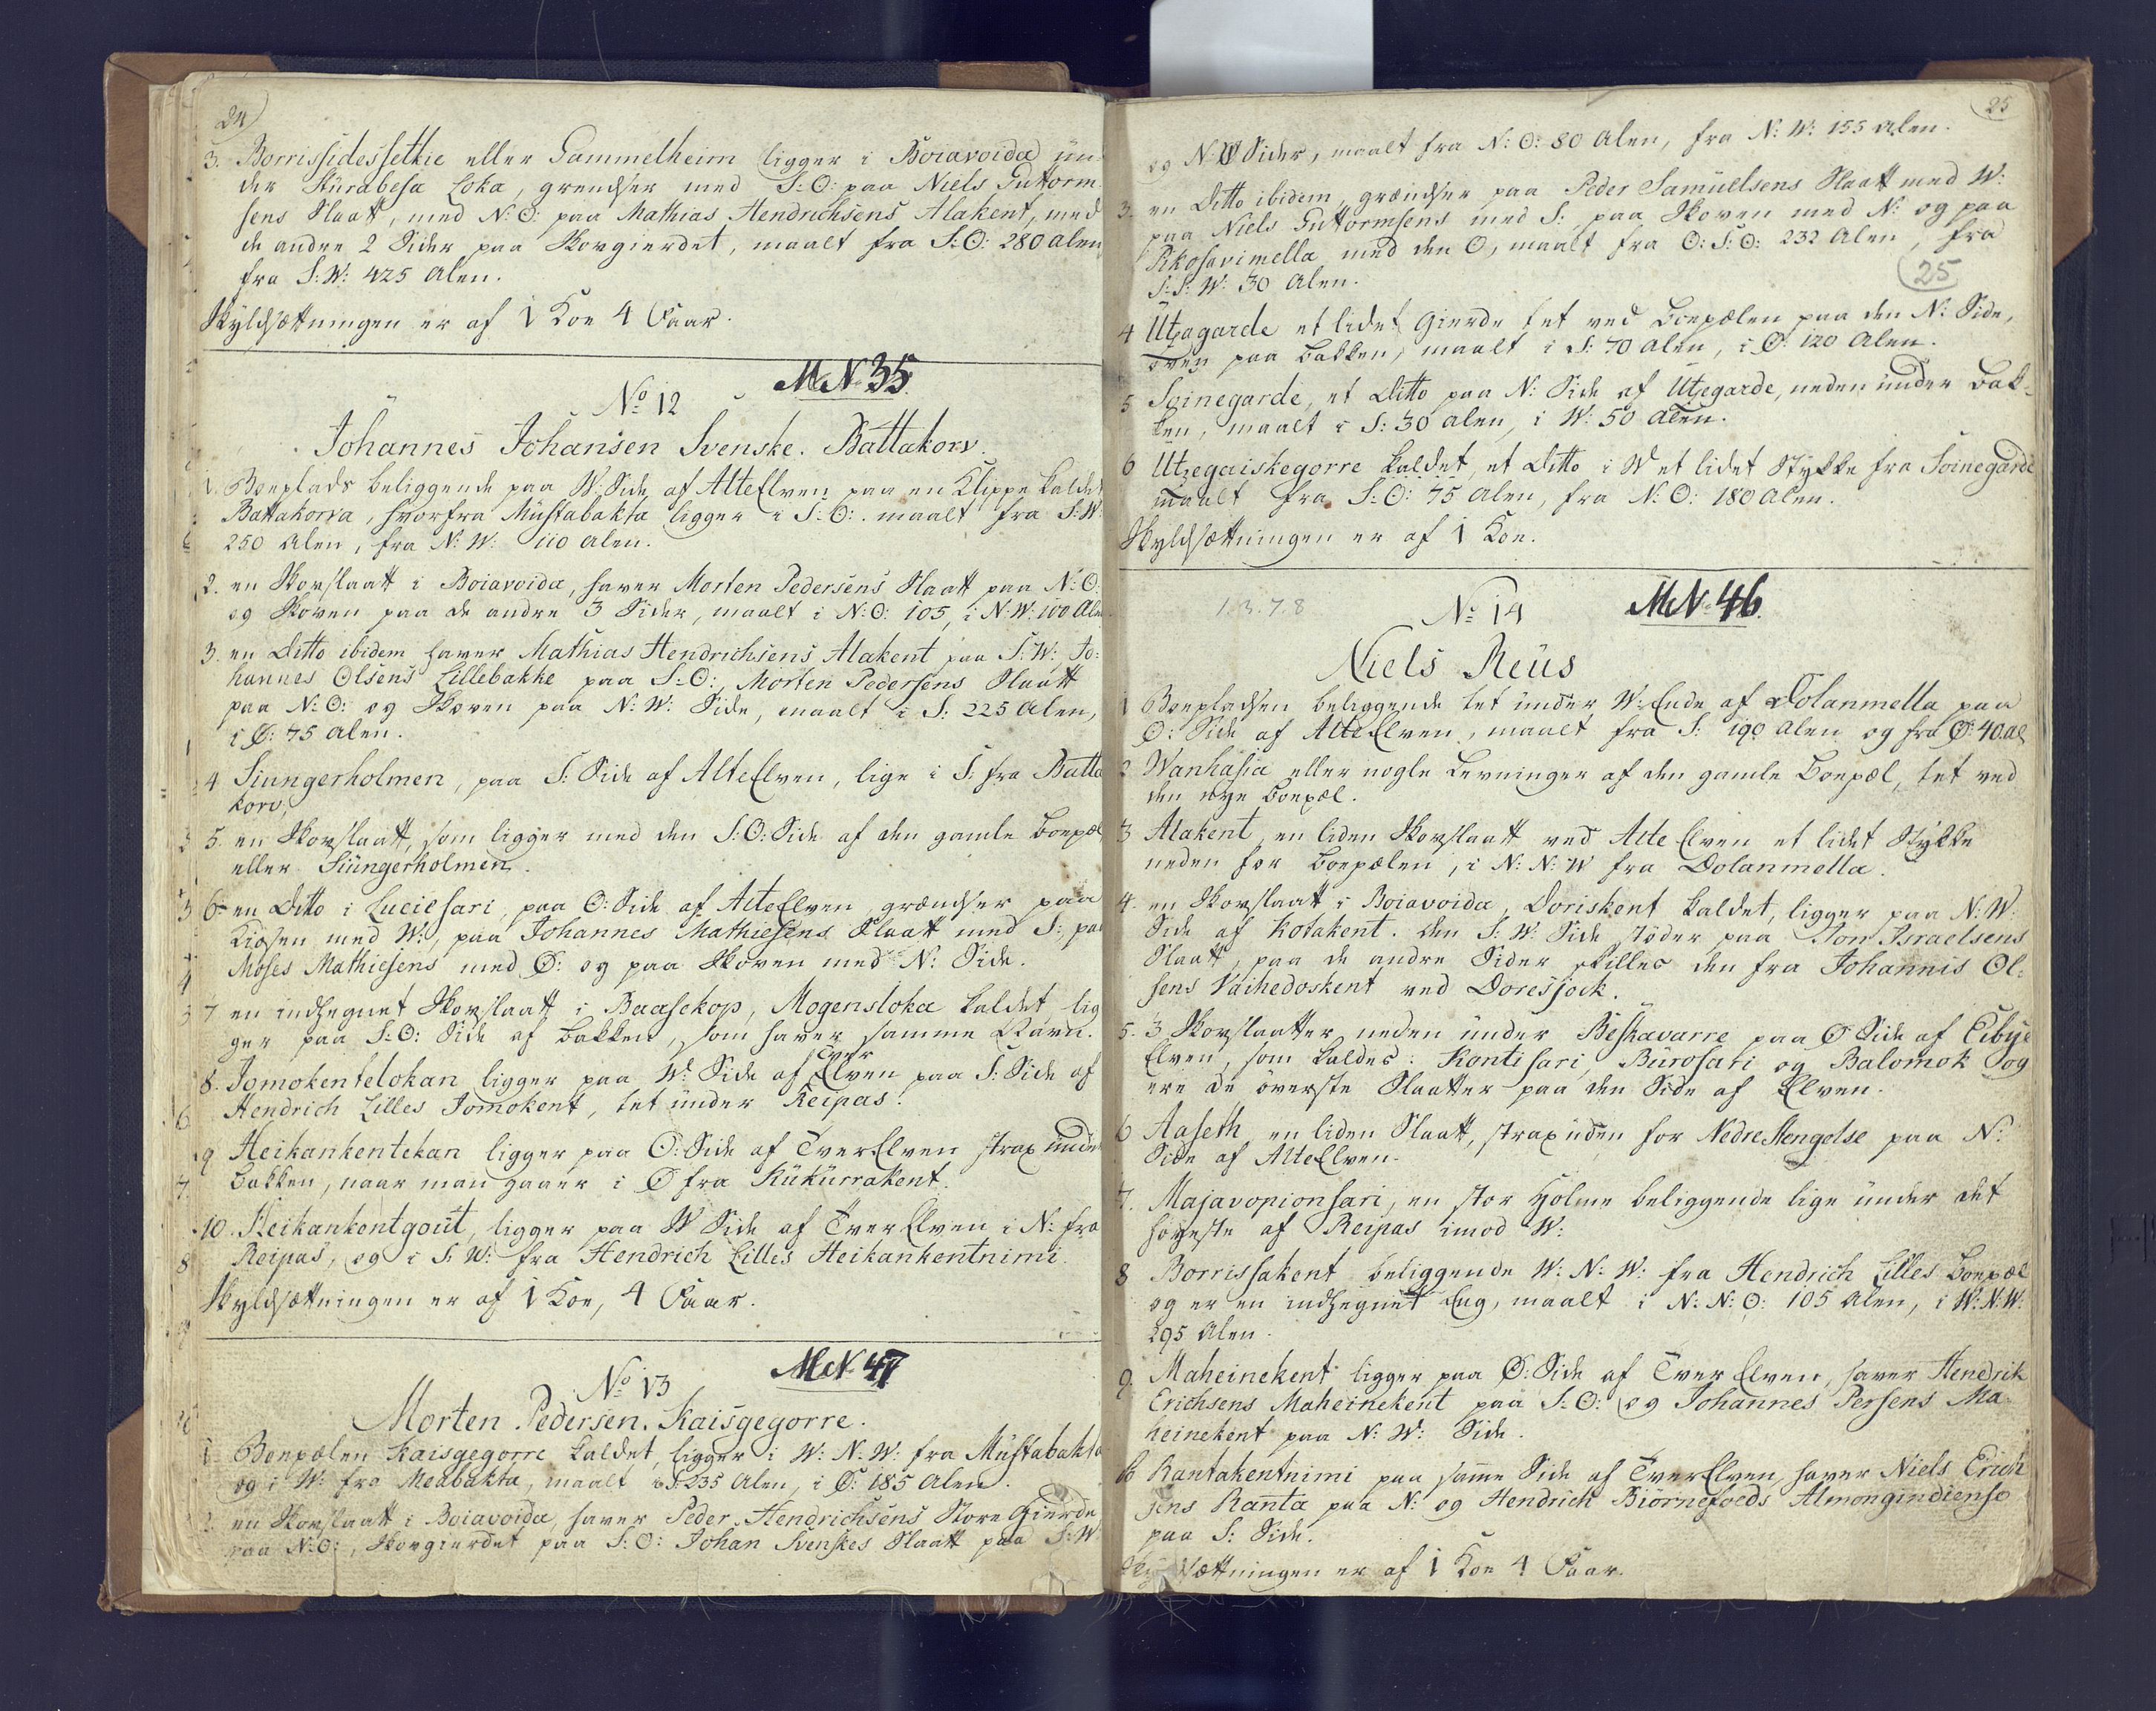 24
3. Borrissidessettie eller Gammelheim ligger i Boiavoida ün-
der Kürabesa Loka, grendser med S:O: paa Niels Guttorm-
sens Slaatt, med N:O: paa Mathias Hendrichsens Alakent, med
de andre 2 Sider paa Skovgierdet, maalt fra S:O: 280 Alen
fra S:W: 425 Alen.
Skyldsætningen er af 1 Koe 4 Faar.
MN 35
No 12
Johannes Johansen Svenske. Battakorv.
1. Boeplads beliggende paa W: Side af AlteElven paa en Klippe kaldet
Battakorva, hvorfra Müstabakta ligger i S:O: maalt fra S:W:
250 Alen, fra N:W: 110 Alen.
2. en Skovslaatt i Boiavoida, haver Morten Pedersens Slaatt paa N:O:
og Skoven paa de andre 3 Sider, maalt i N:O: 105, i N:W: 100 Alen
3. en Ditto ibidem haver Mathias Hendrichsens Alakent paa S:W: Jo-
hannes Olsens Lillebakke paa S:O: Morten Pedersens Slaatt
paa N:O: og Skoven paa N:W: Side, maalt i S: 225 Alen,
i Ø: 75 Alen.
4 Siungerholmen, paa S: Side af AlteElven, lige i S: fra Batta
korv,
5. en Skovslaatt, som ligger med den S:O: Side af den gamle Boepæl
eller Siüngerholmen.
6. en Ditto i Luciesari, paa O: Side af AlteElven, grændser paa
Kiosen med W:, paa Johannes Mathiesens Slaatt med S:, paa
Moses Mathiesens med Ø: og paa Skoven med N: Side.
7 en indhegnet Skovslaatt i Baasekop, Mogensloka kaldet, lig
ger paa S:O: Side af Bakken, som haver samme Navn.
Tver
8. Jomokentelokan ligger paa W: Side af Elven paa S: Side af
Hendrich Lilles Jomokent, tet ünder Reipas.
9 Heikankentekan ligger paa O: Side af TverElven strax ünder
Bakken, naar man gaaer i Ø fra Kükürrakent.
10. Heikankentgoüt, ligger paa W Side af TverElven i N: fra
Reipas, og i S:W: fra Hendrich Lilles Heikankentnimi.
Skyldsætningen er af 1 Koe, 4 Faar.
MN 47
No 13
Morten Pedersen. Kaisgegorre.
1 Boepælen Kaisgegorre kaldet, ligger i W:N:W: fra Müstabakta
og i W: fra Meabakta, maalt i S: 235 Alen, i Ø: 185 Alen.
2 en Skovslaatt i Boiavoida, haver Peder Hendrichsens Store Gierde
paa N:O:, Skovgierdet paa S:O: Johan Svenskes Slaatt paa S:W:
25
og N:W Sider, maalt fra N:O: 80 Alen, fra N:W: 155 Alen.
3. en Ditto ibidem, grændser paa Peder Samuelsens Slaatt med W:
paa Niels Guttormsens med S: paa Skoven med N: og paa
Rkosavimella med den O, maalt fra O:S:O: 232 Alen, fra
S:S:W: 30 Alen.
25
4 Utzagarde et lidet Gierde tet ved Boepælen paa den N: Side,
oven paa Bakken, maalt i S: 70 Alen, i Ø: 120 Alen.
5 Soinegarde, et Ditto paa N: Side af Utzegarde, neden ünder Bak-
ken, maalt i S: 30 Alen, i W: 50 Alen.
6 Utzegaiskegorre kaldet, et Ditto i W et lidet Stykke fra Soinegarde
maalt fra S:O: 75 Alen, fra N:O: 180 Alen.
Skyldsætningen er af 1 Koe.
1.3.7.8
No 14
MN 46
Niels Reüs
1 Boepladsen beliggende tet ünder W: Ende af Dolanmella paa
O: Side af AlteElven, maalt fra S: 190 Alen og fra Ø: 40 Al
2 Wanhasia eller nogle Levninger af den gamle Boepæl, tet ved
den nye Boepæl.
3 Alakent, en liden Skovslaatt ved Alte Elven et lidet Stykke
neden for Boepælen, i N:N:W fra Dolanmella.
4. en Skovslaatt i Boiavoida, Doriskent kaldet, ligger paa N:W:
Side af Kotakent. den S:W: Side støder paa Jon Israelsens
Slaatt, paa de andre Sider skilles den fra Johannis Ol-
sens Vaihedoskent ved Doresjock.
5. 3 Skovslaatter neden ünder Beskavarre paa Ø Side af Eibye
Elven, som kaldes: Kontisari, Bürosari og Balomok og
ere de överste Slaatter paa den Side af Elven.
6 Aaseth en liden Slaatt, strax üden for Nedre Stengelse paa N:
Side af AlteElven.
7. Majavopionsari, en stor Holme beliggende lige ünder det
høyeste af Reipas imod W:
8 Borrissakent beliggende W:N:W: fra Hendrich Lilles Boepæl
og er en indhegnet Eng, maalt i N:N:O: 105 Alen, i W:N:W:
295 Alen.
9 Maheinekent ligger paa Ø: Side af Tver Elven, haver Hendrik
Erichsens Maheinekent paa S:O: og Johannes Persens Ma-
heinekent paa N:W: Side.
10 Rantakentnimi paa samme Side af TverElven, haver Niels Erich
sens Ranta paa N: og Hendrich Biörnefoeds Almongindiense
paa S: Side.
Skyldsætningen er af 1 Koe 4 Faar.